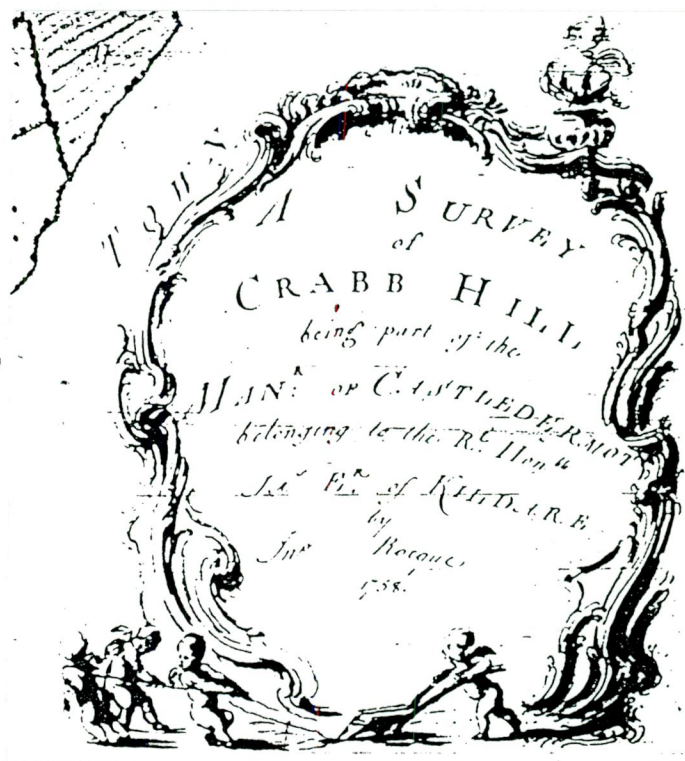 A SURVEY
of
CRABB HILL
being part of the
MANR. OF CASTLEDERMOT
belonging to the Rt. Honble
Jas. of KILDARE
by
Jno Rocque,
1758.